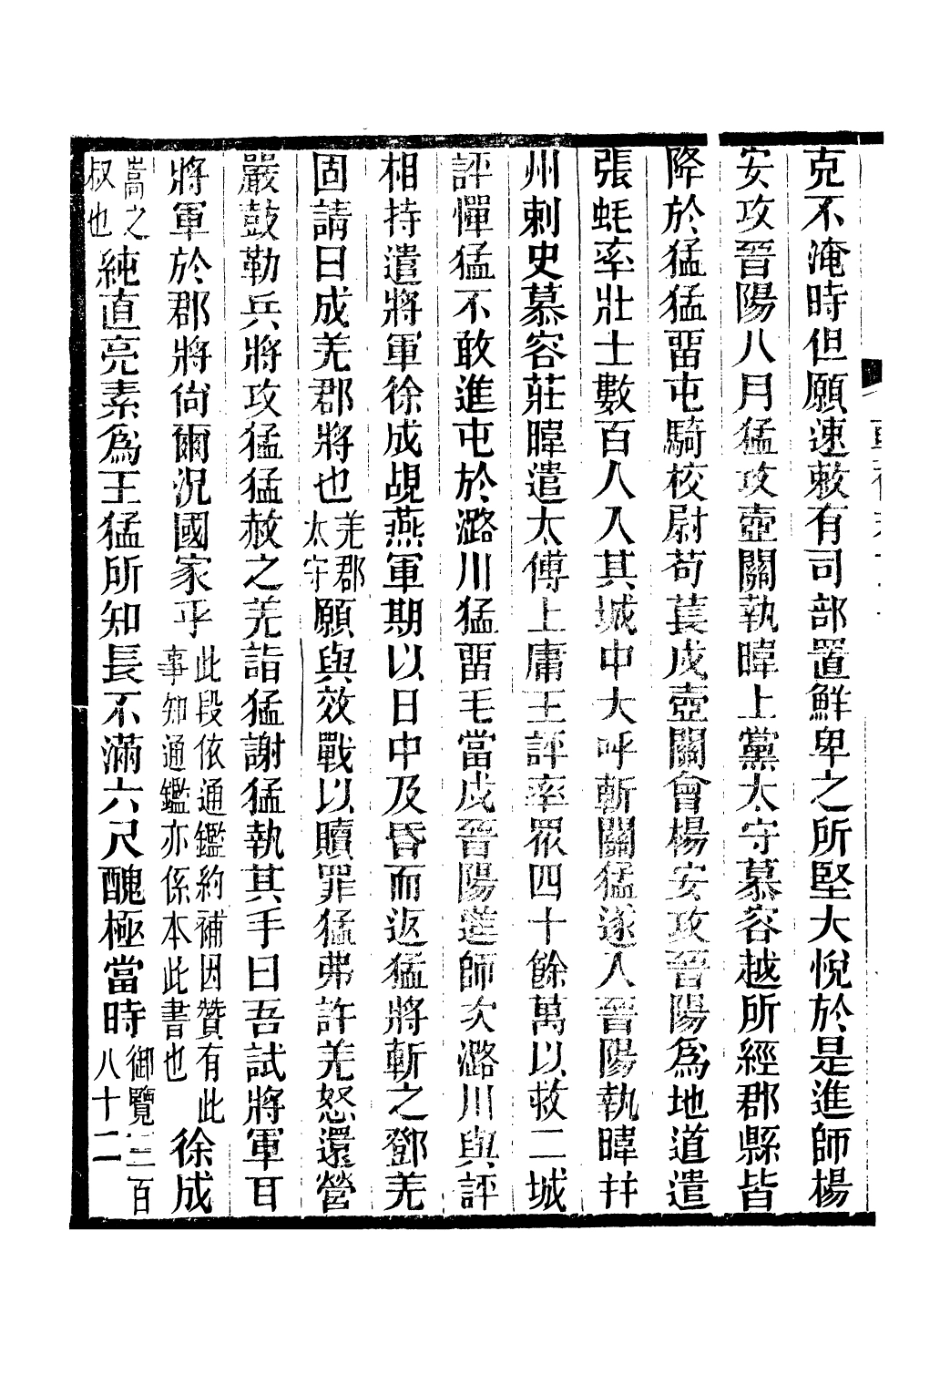 克不淹時但願速敕有司部置鮮卑之所堅大悅於是進師楊
安攻晉陽八月猛攻壺關執暐上黨太守慕容越所經郡縣皆
降於猛猛畱屯騎校尉苟萇戍壺關會楊安攻晉陽為地道遣
張蚝率壯士數百人入其城中大呼斬關猛遂入晉陽執暐幷
州刺史慕容莊暐遣太傅上庸王評率眾四十餘萬以救二城
評憚猛不敢進屯於潞川猛畱毛當戍晉陽進師次潞川與評
相持遣將軍徐成覘燕軍期以日中及昏而返猛將斬之鄧羌
固請曰成羌郡將也羌郡太守願與效戰以贖罪猛弗許羌怒還營
嚴鼓勒兵將攻猛猛赦之羌詣猛謝猛執其手曰吾試將軍耳
將軍於郡將尚爾況國家乎此段依通鑑約補因贊有此事知通鑑亦係本此書也徐成
嵩之叔也純直亮素為王猛所知長不滿六尺醜極當時御覽三百八十二